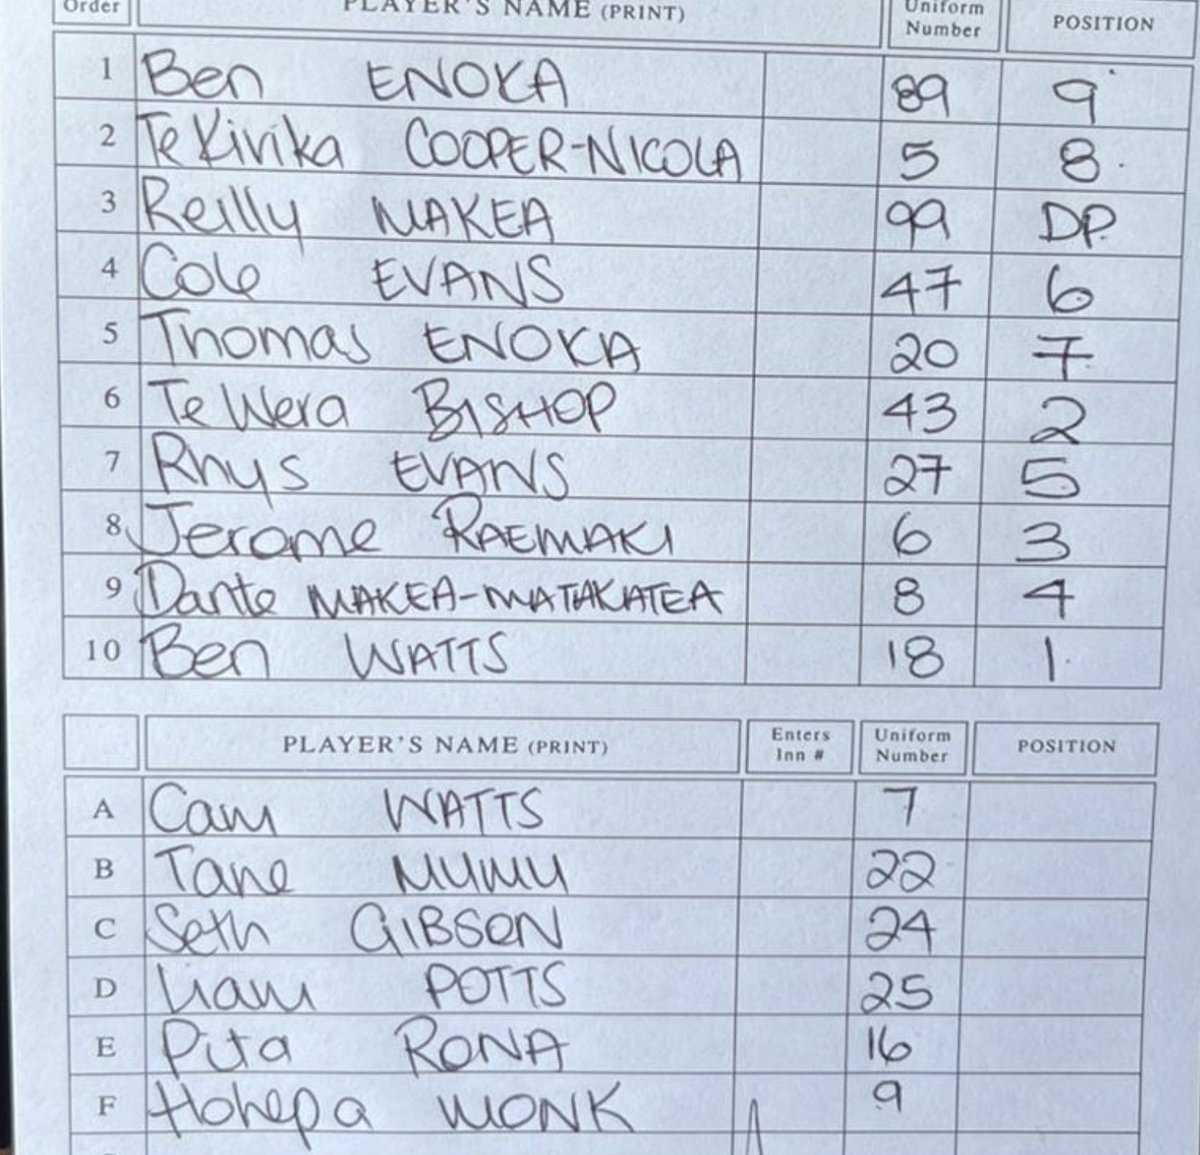 Order PLAYER'S NAME (PRINT) Uniform Number POSITION
1 Ben ENOKA 89 9
2 Te Kirika COOPER-NICOLA 5 8
3 Reilly MAKEA 99 DP
4 Cole EVANS 47 6
5 Thomas ENOKA 20 7
6 Te Wera BISHOP 43 2
7 Rhys EVANS 27 5
8 Jerome RAEMAKI 6 3
9 Dante MAKEA-MATAKATEA 8 4
10 Ben WATTS 18 1
PLAYER'S NAME (PRINT) Enters Inn # Uniform Number POSITION
A Cam WATTS 7
B Tane MUMU 22
C Seth GIBSON 24
D Liam POTTS 25
E Pita RONA 16
F Hohepa MONK 9